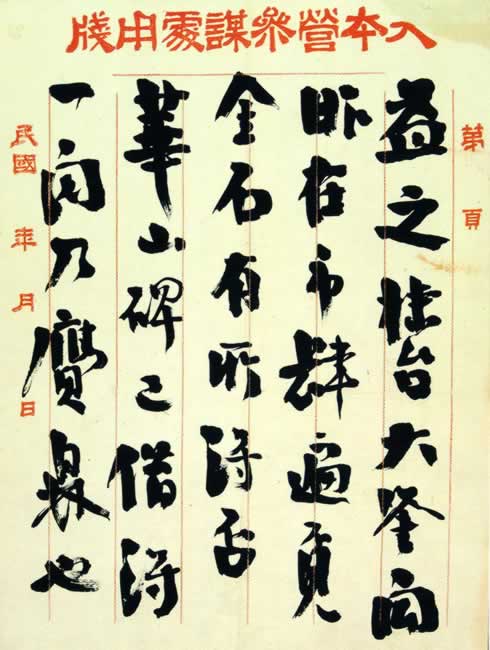 第 頁
大本營參謀處用牋
益之台大鉴闻
昨在市肆遍覓
金石有所得否
華山碑已借得
一阅乃贋鼎也
民國 年 月 日